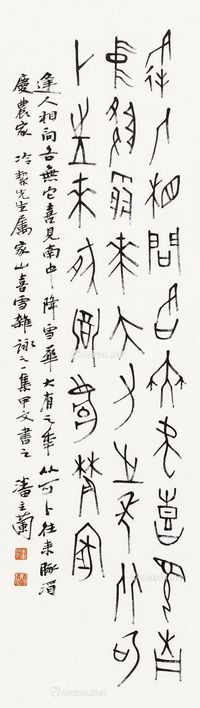 逢人相問各無它喜見南
中降雪華大有之年从可
卜往來豚酒慶農家
逢人相問各無它喜見南中降雪華大有之年从可卜往來豚酒
慶農家 冷絜先生屬 家山喜雪雜詠之一集甲文書之 潘主蘭